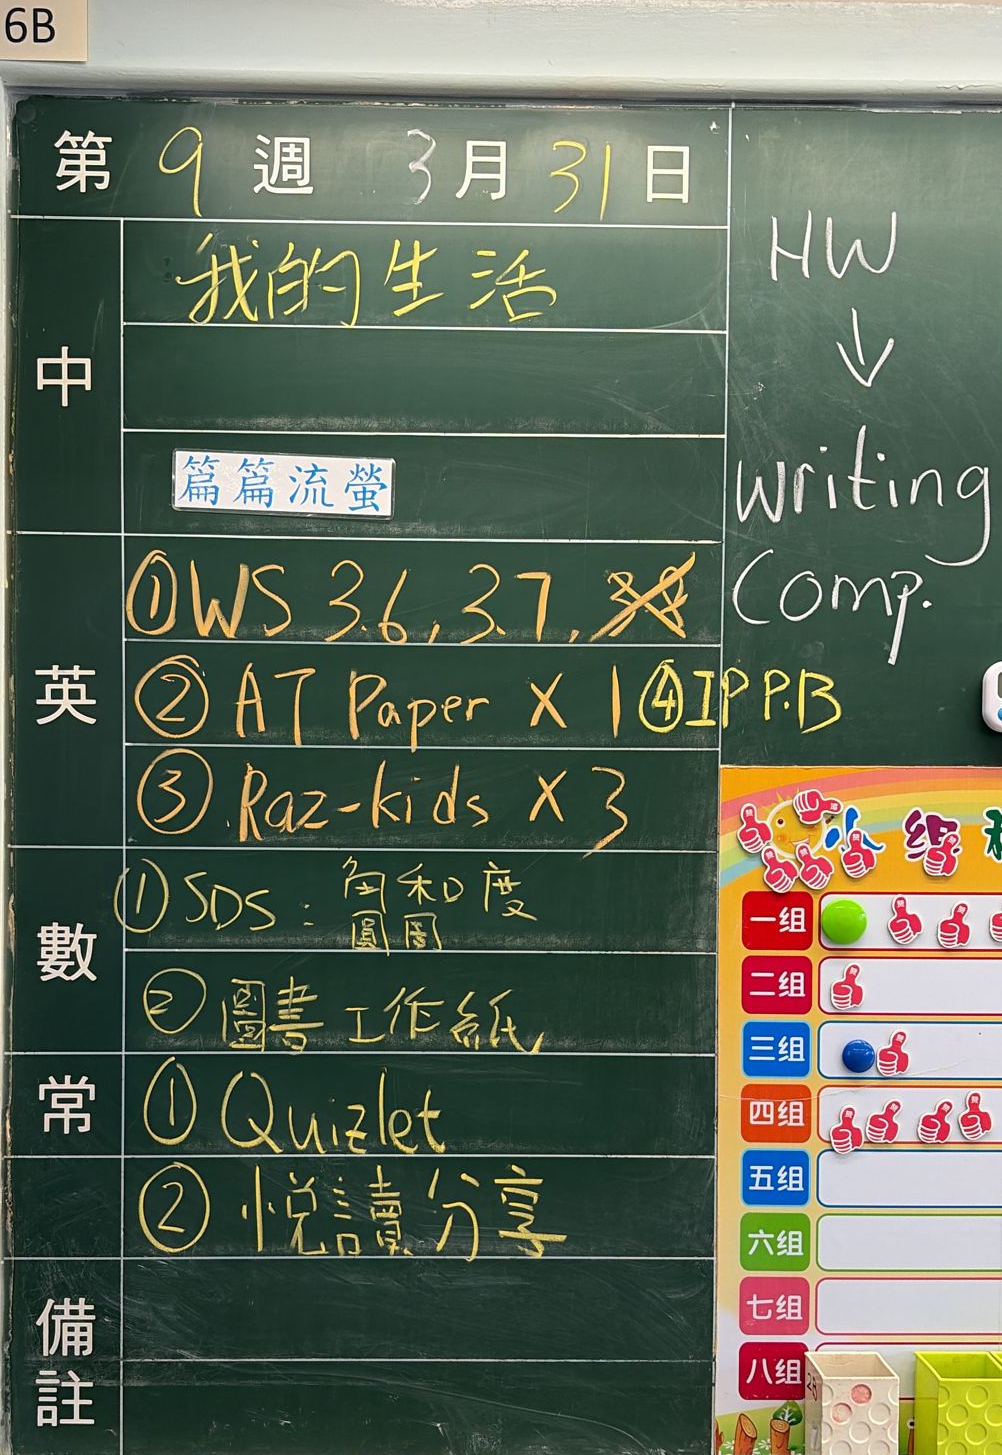 6B
第 9 週 3 月 31 日
中
我的生活
篇篇流螢
英
① WS 3.6, 3.7,
② AT Paper X 1 ④ IP P.B
③ Raz-kids X 3
數
① SDS : 角和度
圓周
② 圖書工作紙
常
① Quizlet
② 悅讀分享
備註
HW
↓
Writing
Comp.
小组
一组
二组
三组
四组
五组
六组
七组
八组